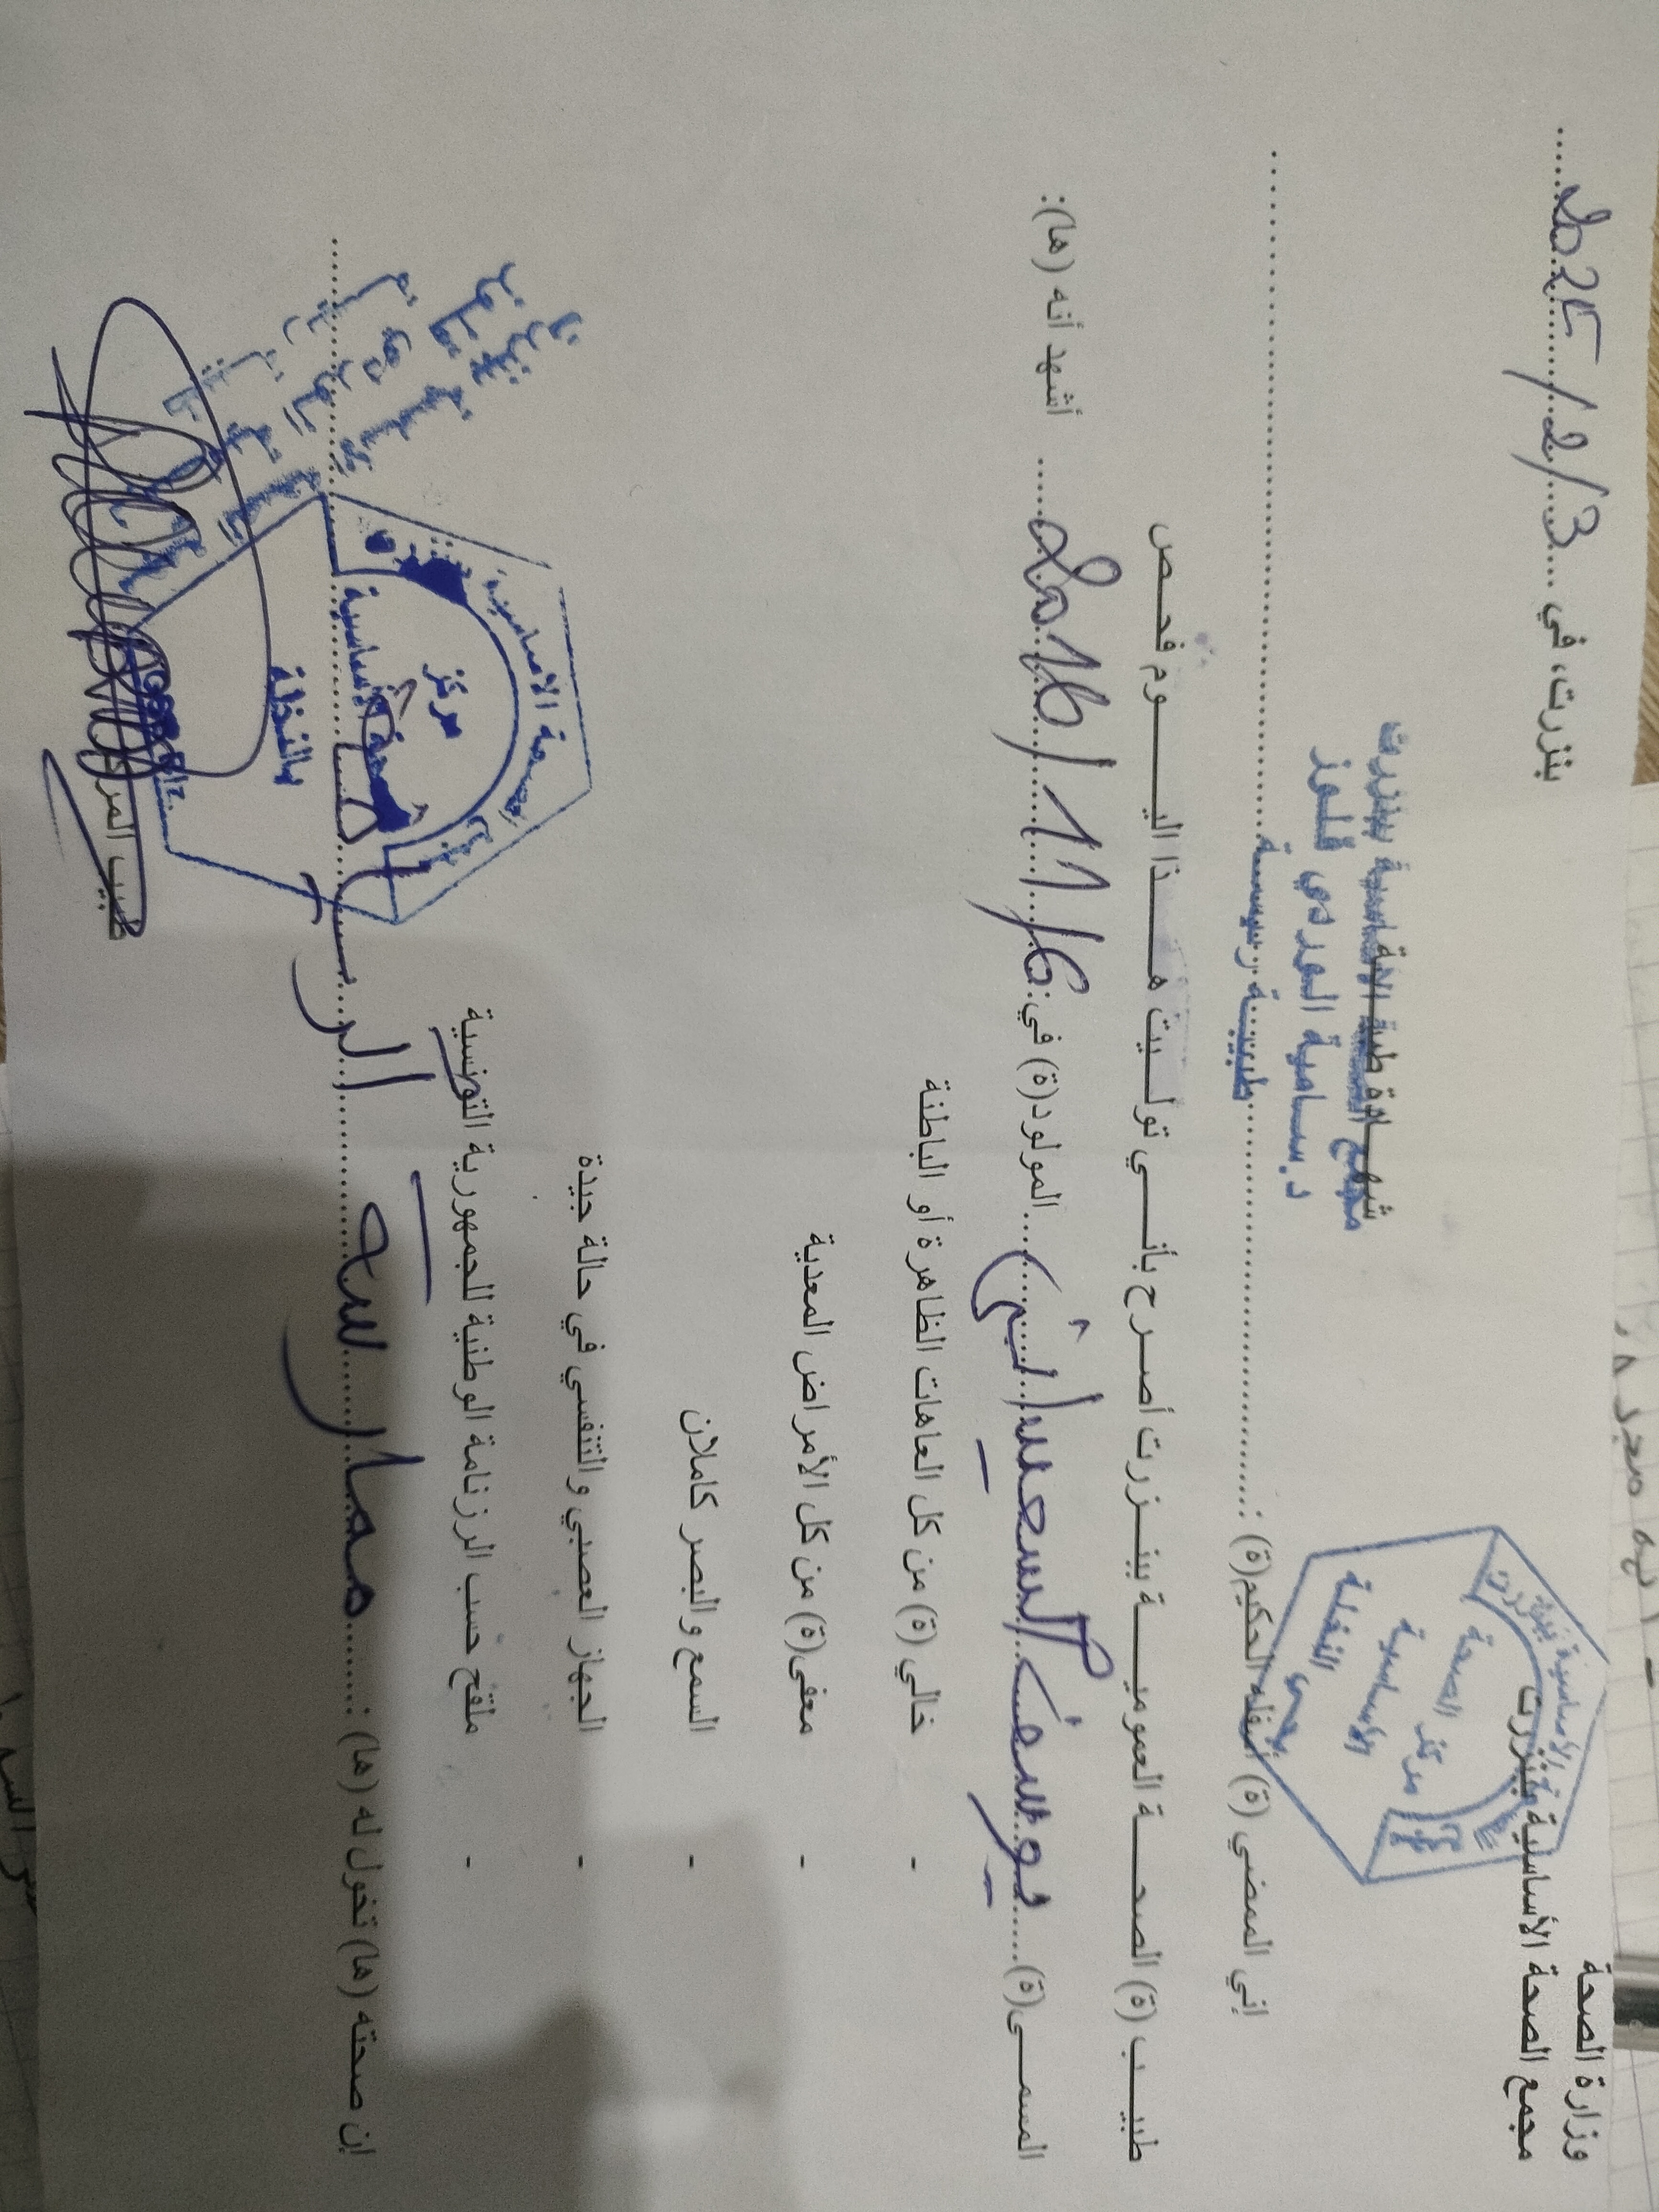 وزارة الصحة
مجمع الصحة الأساسية ببنزرت
بنزرت، في 2025/2/3
مركز الصحة
الأساسية
النخلة
شهادة طبية
مجمع الصحة الأساسية ببنزرت
د. سامية الوردي قلوز
طبيبة رئيسة
إني الممضي (ة) أسفله الحكيم(ة) :
طبيب (ة) الصحة العمومية ببنزرت أصرح بأنني توليت هذا اليوم فحص
المسمى(ة) يوسف السعيداني المولود(ة) في: 2016/11/6 أشهد أنه (ها):
- خالي (ة) من كل العاهات الظاهرة أو الباطنة
- معفى(ة) من كل الأمراض المعدية
- السمع والبصر كاملان
- الجهاز العصبي والتنفسي في حالة جيدة
- ملقح حسب الرزنامة الوطنية للجمهورية التونسية
إن صحته (ها) تخول له (ها) : ممارسة الرياضة
مركز
الصحة الأساسية
بالنخلة
طبيب المركز